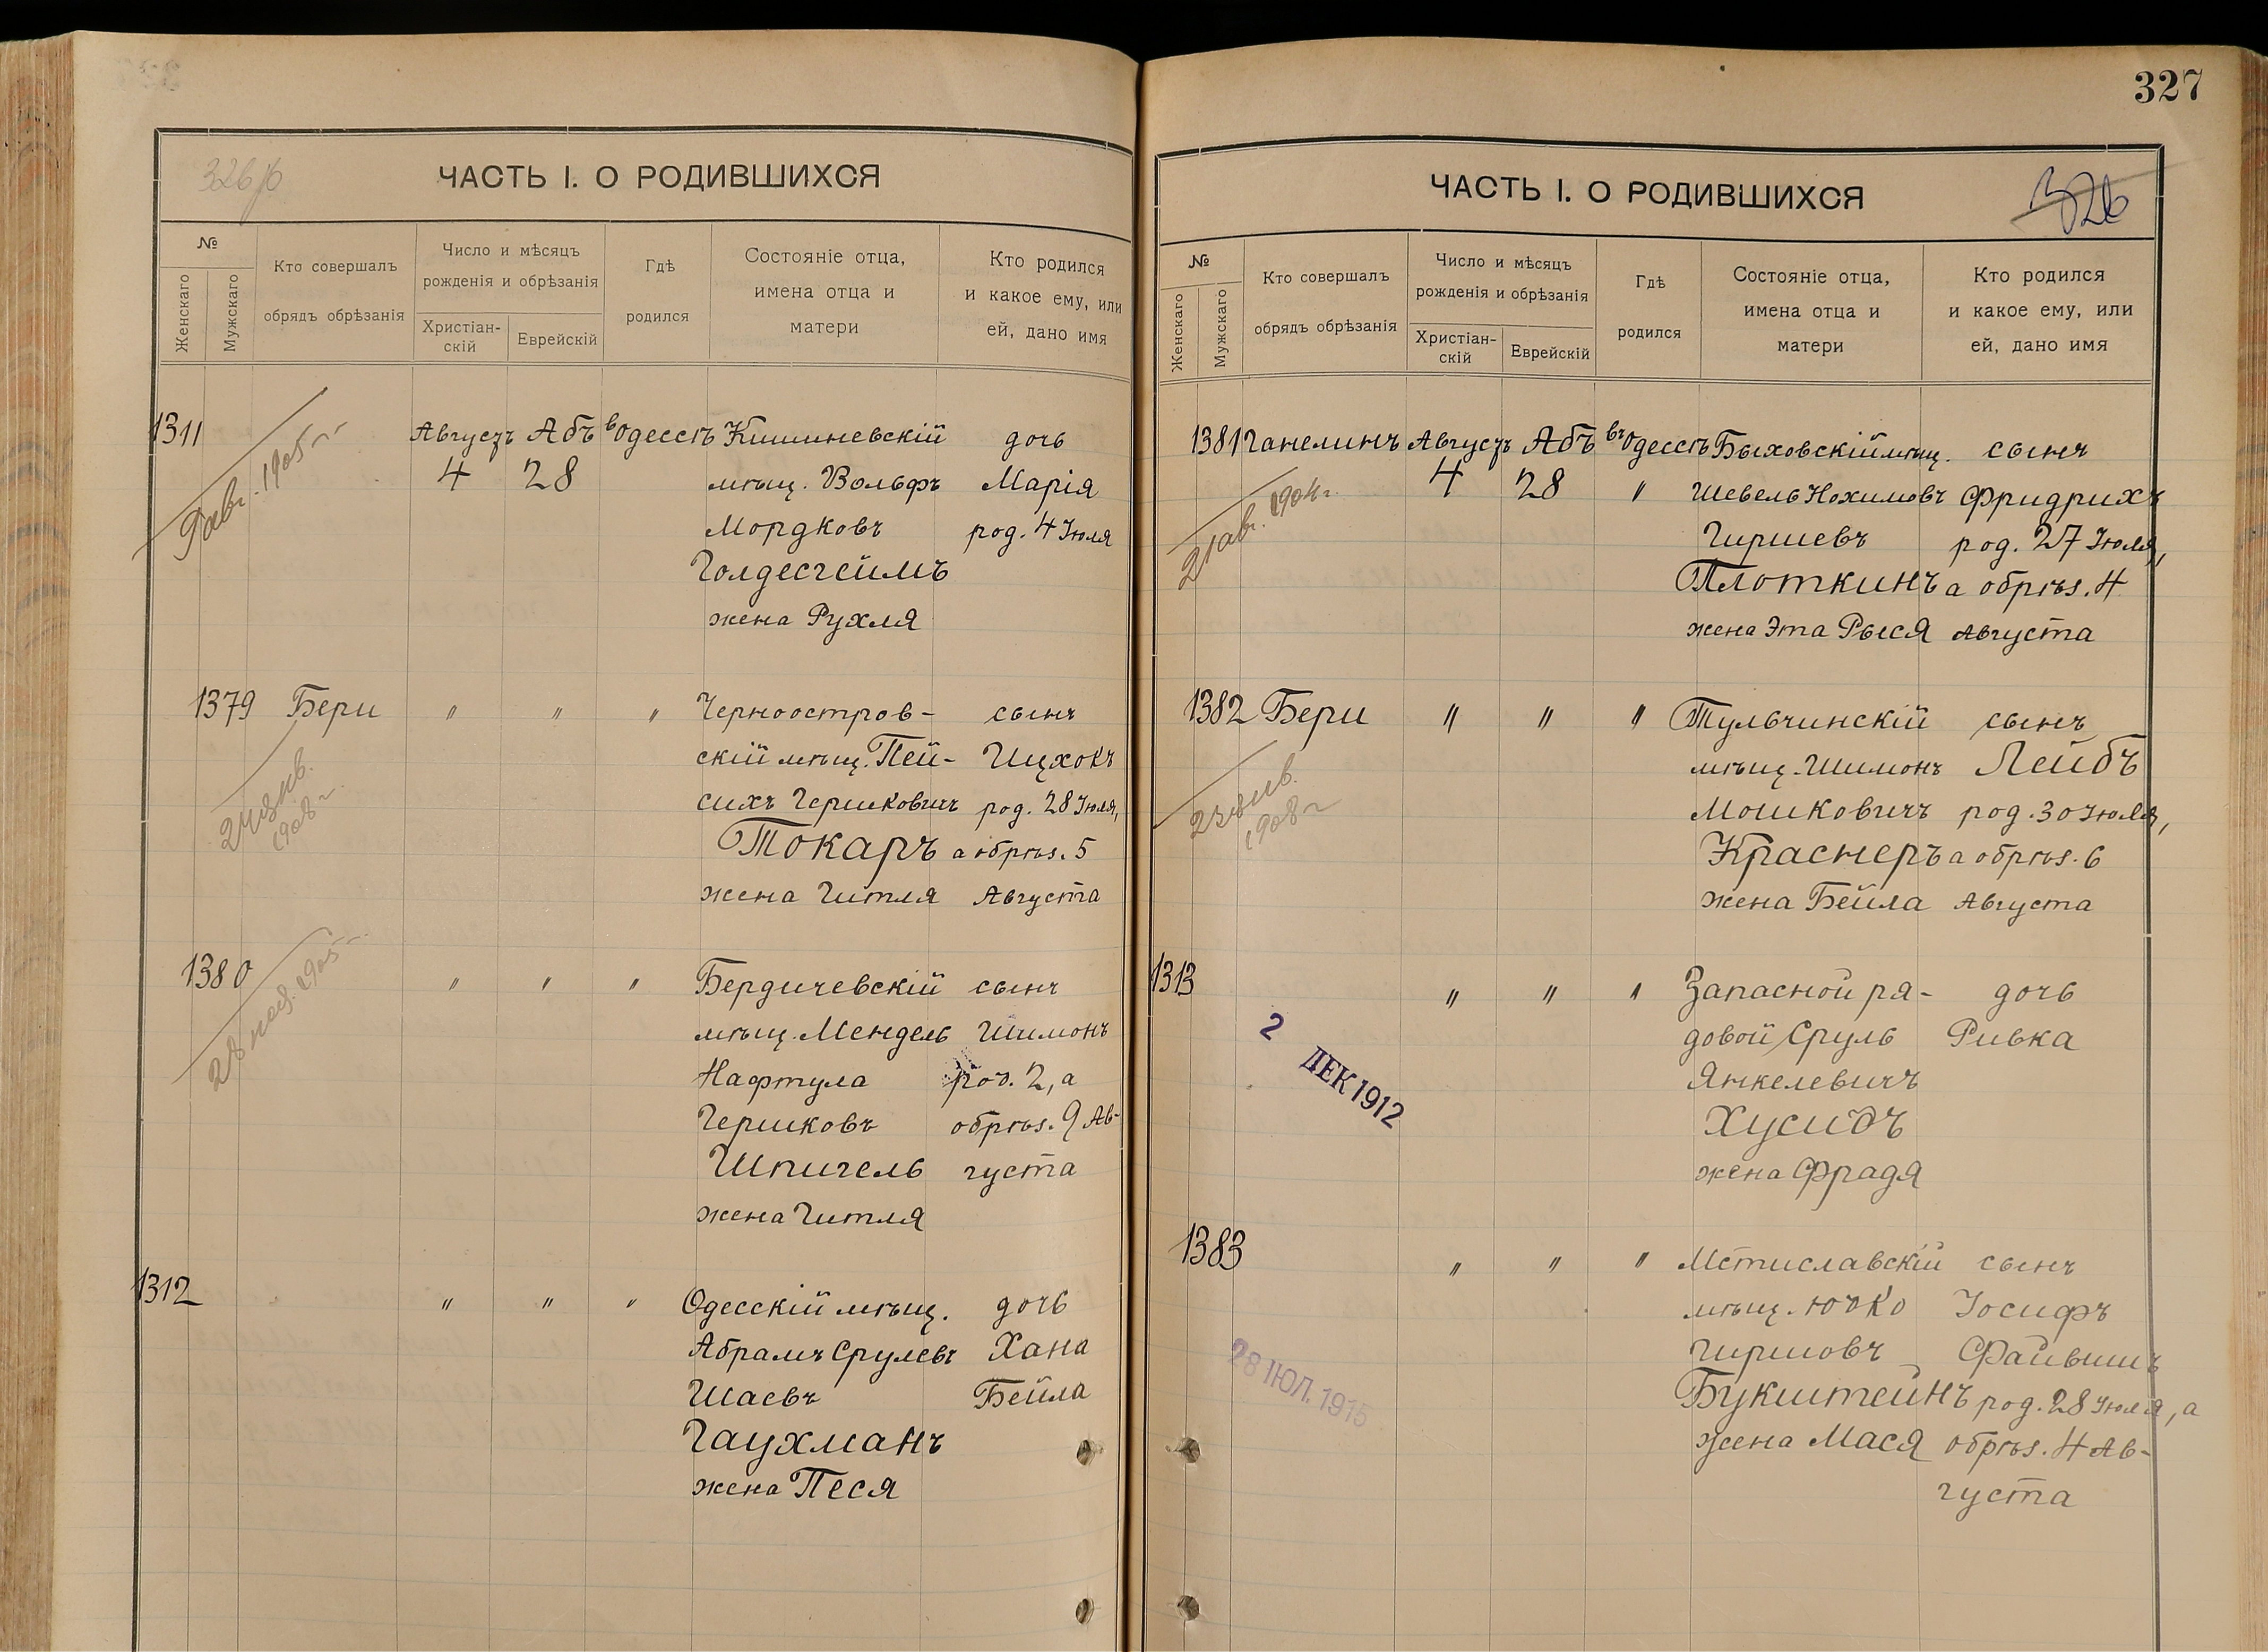 327
326
ЧАСТЬ I. О РОДИВШИХСЯ
№
Женскаго
Мужскаго
Кто совершалъ
обрядъ обрѣзанія
Число и мѣсяцъ
рожденія и обрѣзанія
Христіан-
скій
Еврейскій
Гдѣ
родился
Состояніе отца,
имена отца и
матери
Кто родился
и какое ему, или
ей, дано имя
1311 Августъ Абъ въ Одессѣ Кишиневскій дочь
4 28 мѣщ. Вольфъ Марія
Мордковъ род. 4 Іюля
Голдесгеймъ
жена Рухля
9 авг. 1905 г.
1379 Бери " " " Черноостров- сынъ
скій мѣщ. Пей- Ицхокъ
сихъ Гершковичъ род. 28 Іюля,
Токаръ а обрѣз. 5
жена Гитля Августа
24 янв.
1908 г.
1380 " " " Бердичевскій сынъ
мѣщ. Мендель Шимонъ
Нафтула род. 2, а
Гершковъ обрѣз. 9 Ав-
Шпигель густа
жена Гитля
1905
1312 " " " Одесскій мѣщ. дочь
Абрамъ Срулевъ Хана
Шаевъ Бейла
Гаухманъ
жена Песя
ЧАСТЬ I. О РОДИВШИХСЯ
326
№
Женскаго
Мужскаго
Кто совершалъ
обрядъ обрѣзанія
Число и мѣсяцъ
рожденія и обрѣзанія
Христіан-
скій
Еврейскій
Гдѣ
родился
Состояніе отца,
имена отца и
матери
Кто родился
и какое ему, или
ей, дано имя
1381 Ганелинъ Августъ Абъ въ Одессѣ Быховскій мѣщ. сынъ
4 28 " Шевель Нохимовъ Фридрихъ
Гиршевъ род. 27 Іюля,
Плоткинъ а обрѣз. 4
жена Эта Рыся Августа
21 авг. 1904 г.
1382 Бери " " " Тульчинскій сынъ
мѣщ. Шимонъ Лейбъ
Мошковичъ род. 30 Іюля,
Краснеръ а обрѣз. 6
жена Бейла Августа
23 янв.
1908 г
1313 " " " Запасной ря- дочь
довой Сруль Ривка
Янкелевичъ
Хусидъ
жена Фрадя
2 ДЕК 1912
1383 " " " Мстиславскій сынъ
мѣщ. Юдко Іосифъ
Гиршовъ Файвишъ
Букштейнъ род. 28 Іюля, а
жена Мася обрѣз. 4 Ав-
густа
28 ІЮЛ. 1915